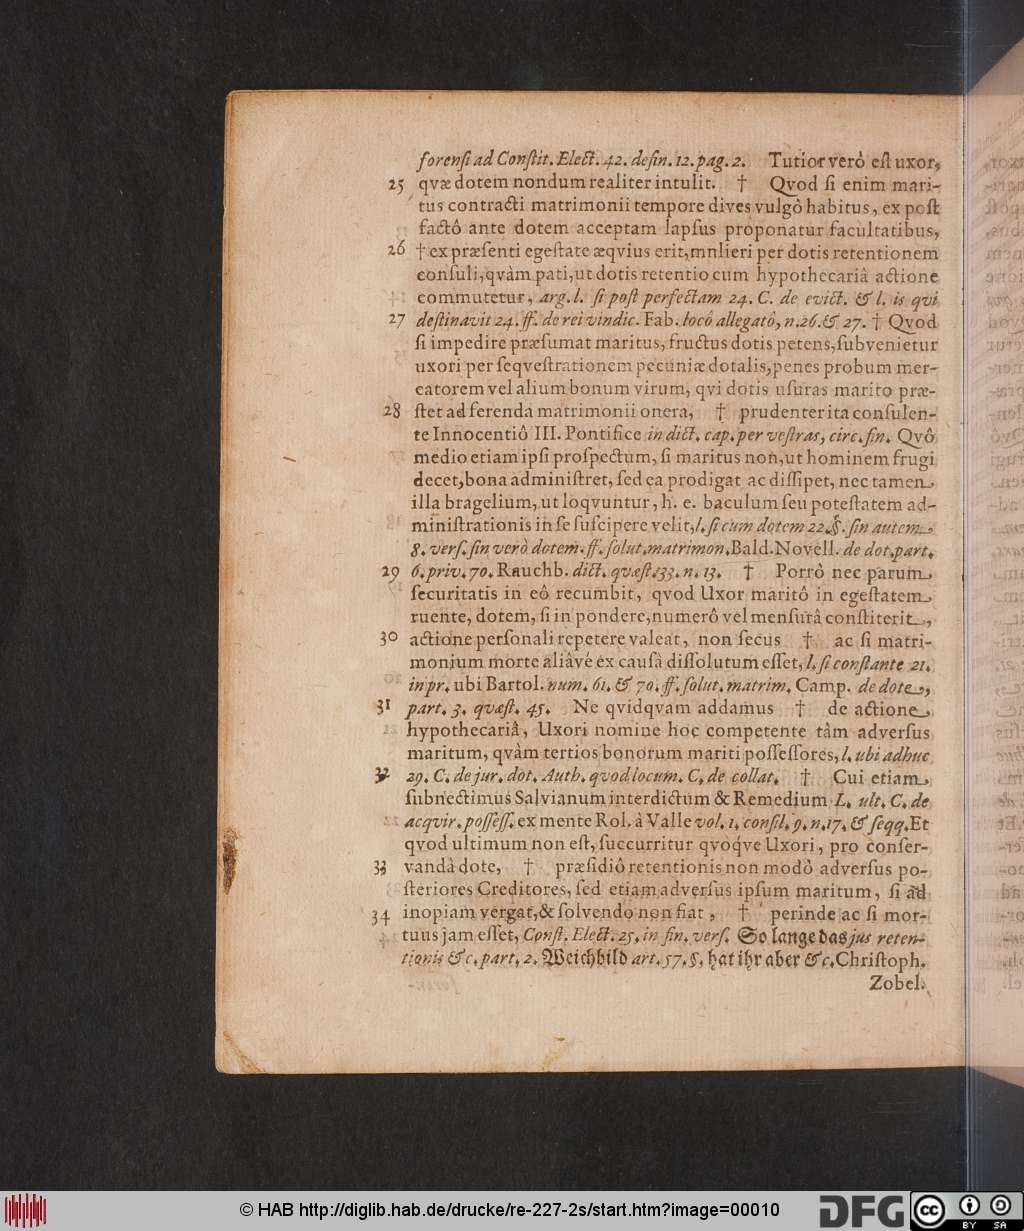 forenſi ad Conſtit. Elect. 42. defin. 12. pag. 2. Tutior verò eſt uxor,
25 qvæ dotem nondum realiter intulit. † Qvod ſi enim mari-
tus contracti matrimonii tempore dives vulgô habitus, ex poſt
factô ante dotem acceptam lapſus proponatur facultatibus,
26 † ex præſenti egeſtate æqvius erit, mnlieri per dotis retentionem
conſuli, qvàm pati, ut dotis retentio cum hypothecariâ actione
commutetur, arg. l. ſi poſt perfectam 24. C. de evict. & l. is qui
27 deſtinavit 24. ff. de rei vindic. Fab. locô allegatô, n. 26. & 27. † Qvod
ſi impedire præſumat maritus, fructus dotis petens, ſubvenietur
uxori per ſeqveſtrationem pecuniæ dotalis, penes probum mer-
catorem vel alium bonum virum, qvi dotis uſuras marito præ-
28 ſtet ad ferenda matrimonii onera, † prudenter ita conſulen-
te Innocentiô III. Pontifice in dict. cap. per veſtras, circ. fin. Qvô
medio etiam ipſi proſpectum, ſi maritus non, ut hominem frugi
decet, bona adminiſtret, ſed ea prodigat ac diſſipet, nec tamen
illa bragelium, ut loqvuntur, h. e. baculum ſeu poteſtatem ad-
miniſtrationis in ſe ſuſcipere velit, l. ſi cum dotem 22. §. ſin autem
8. verſ. ſin verò dotem. ff. ſolut. matrimon. Bald. Novell. de dot. part.
29 6. priv. 70. Rauchb. dict. quæſt. 33. n. 13. † Porrò nec parum
ſecuritatis in eô recumbit, qvod Uxor maritô in egeſtatem
ruente, dotem, ſi in pondere, numerô vel menſurâ conſtiterit,
30 actione perſonali repetere valeat, non ſecus † ac ſi matri-
monium morte aliâvé ex cauſâ diſſolutum eſſet, l. ſi conſtante 21.
in pr. ubi Bartol. num. 61. & 70. ff. ſolut. matrim. Camp. de dote,
31 part. 3. quæſt. 45. Ne qvidqvam addamus † de actione
hypothecariâ, Uxori nomine hoc competente tàm adverſus
maritum, qvàm tertios bonorum mariti poſſeſſores, l. ubi adhuc
32 29. C. de jur. dot. Auth. quod locum. C. de collat. † Cui etiam
ſubnectimus Salvianum interdictum & Remedium L. ult. C. de
acqvir. poſſeſſ. ex mente Rol. à Valle vol. 1. conſil. 9. n. 17. & ſeqq. Et
qvod ultimum non eſt, ſuccurritur qvoq́ve Uxori, pro conſer-
33 vandâ dote, † præſidiô retentionis non modò adverſus po-
ſteriores Creditores, ſed etiam adverſus ipſum maritum, ſi ad
34 inopiam vergat, & ſolvendo non ſiat, † perinde ac ſi mor-
tuus jam eſſet, Conſt. Elect. 25. in fin. verſ. So lange das jus reten-
tionis &c. part. 2. Weichbild art. 57. §. hat ihr aber &c. Chriſtoph.
Zobel.
© HAB http://diglib.hab.de/drucke/re-227-2s/start.htm?image=00010
DFG
cc
BY SA